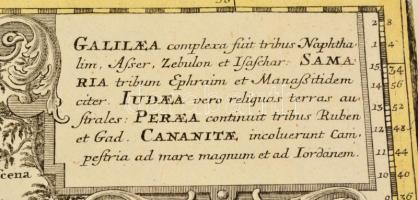 GALILÆA complexa fuit tribus Naphtha
lim, Asser, Zebulon et Isaschar: SAMA
RIA tribum Ephraim et Manaßitidem
citer. IUDÆA vero reliquas terras au
strales: PERÆA continuit tribus Ruben
et Gad. CANANITÆ, incoluerunt Cam
pestria ad mare magnum et ad Iordanem.
cena